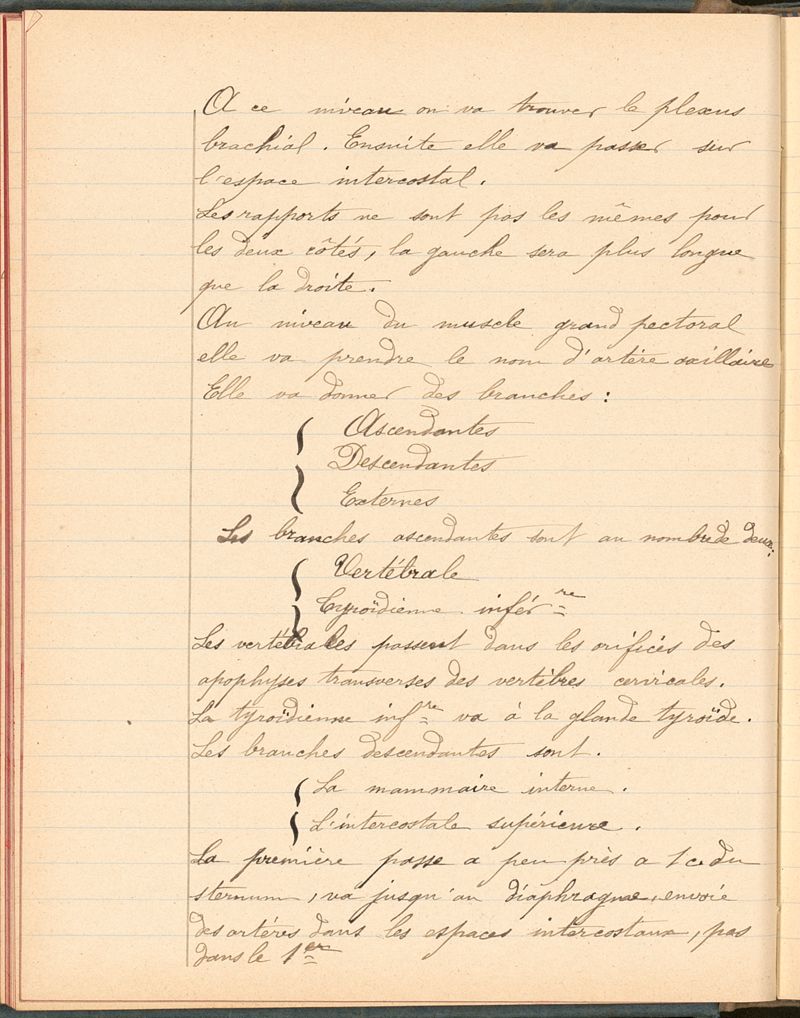 A ce niveau on va trouver le plexus
brachial. Ensuite elle va passer sur
l'espace intercostal.
Les rapports ne sont pas les mêmes pour
les deux côtés, la gauche sera plus longue
que la droite.
Au niveau du muscle grand pectoral
elle va prendre le nom d'artère axillaire
Elle va donner des branches :
Ascendantes
Descendantes
Externes
Les branches ascendantes sont au nombre de deux:
Vertébrale
Tyroïdienne infér re
Les vertébrales passent dans les orifices des
apophyses transverses des vertèbres cervicales.
La tyroïdienne inf re va à la glande tyroïde.
Les branches descendantes sont.
La mammaire interne.
L'intercostale supérieure.
La première passe a peu près a 1 c. du
sternum, va jusqu'au diaphragme, envoie
des artères dans les espaces intercostaux, pas
dans le 1er